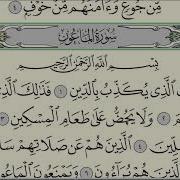 مِّن جُوعٍ وَءَامَنَهُم مِّنْ خَوْفٍۭ ٤
سُورَةُ المَاعُونِ
بِسْمِ اللَّهِ الرَّحْمَٰنِ الرَّحِيمِ
الَّذِي يُكَذِّبُ بِالدِّينِ ١ فَذَٰلِكَ الَّذِي
وَلَا يَحُضُّ عَلَىٰ طَعَامِ الْمِسْكِينِ ٣
الَّذِينَ هُمْ عَن صَلَاتِهِمْ
هُمْ يُرَآءُونَ ٦ وَيَمْنَعُونَ الْمَاعُونَ